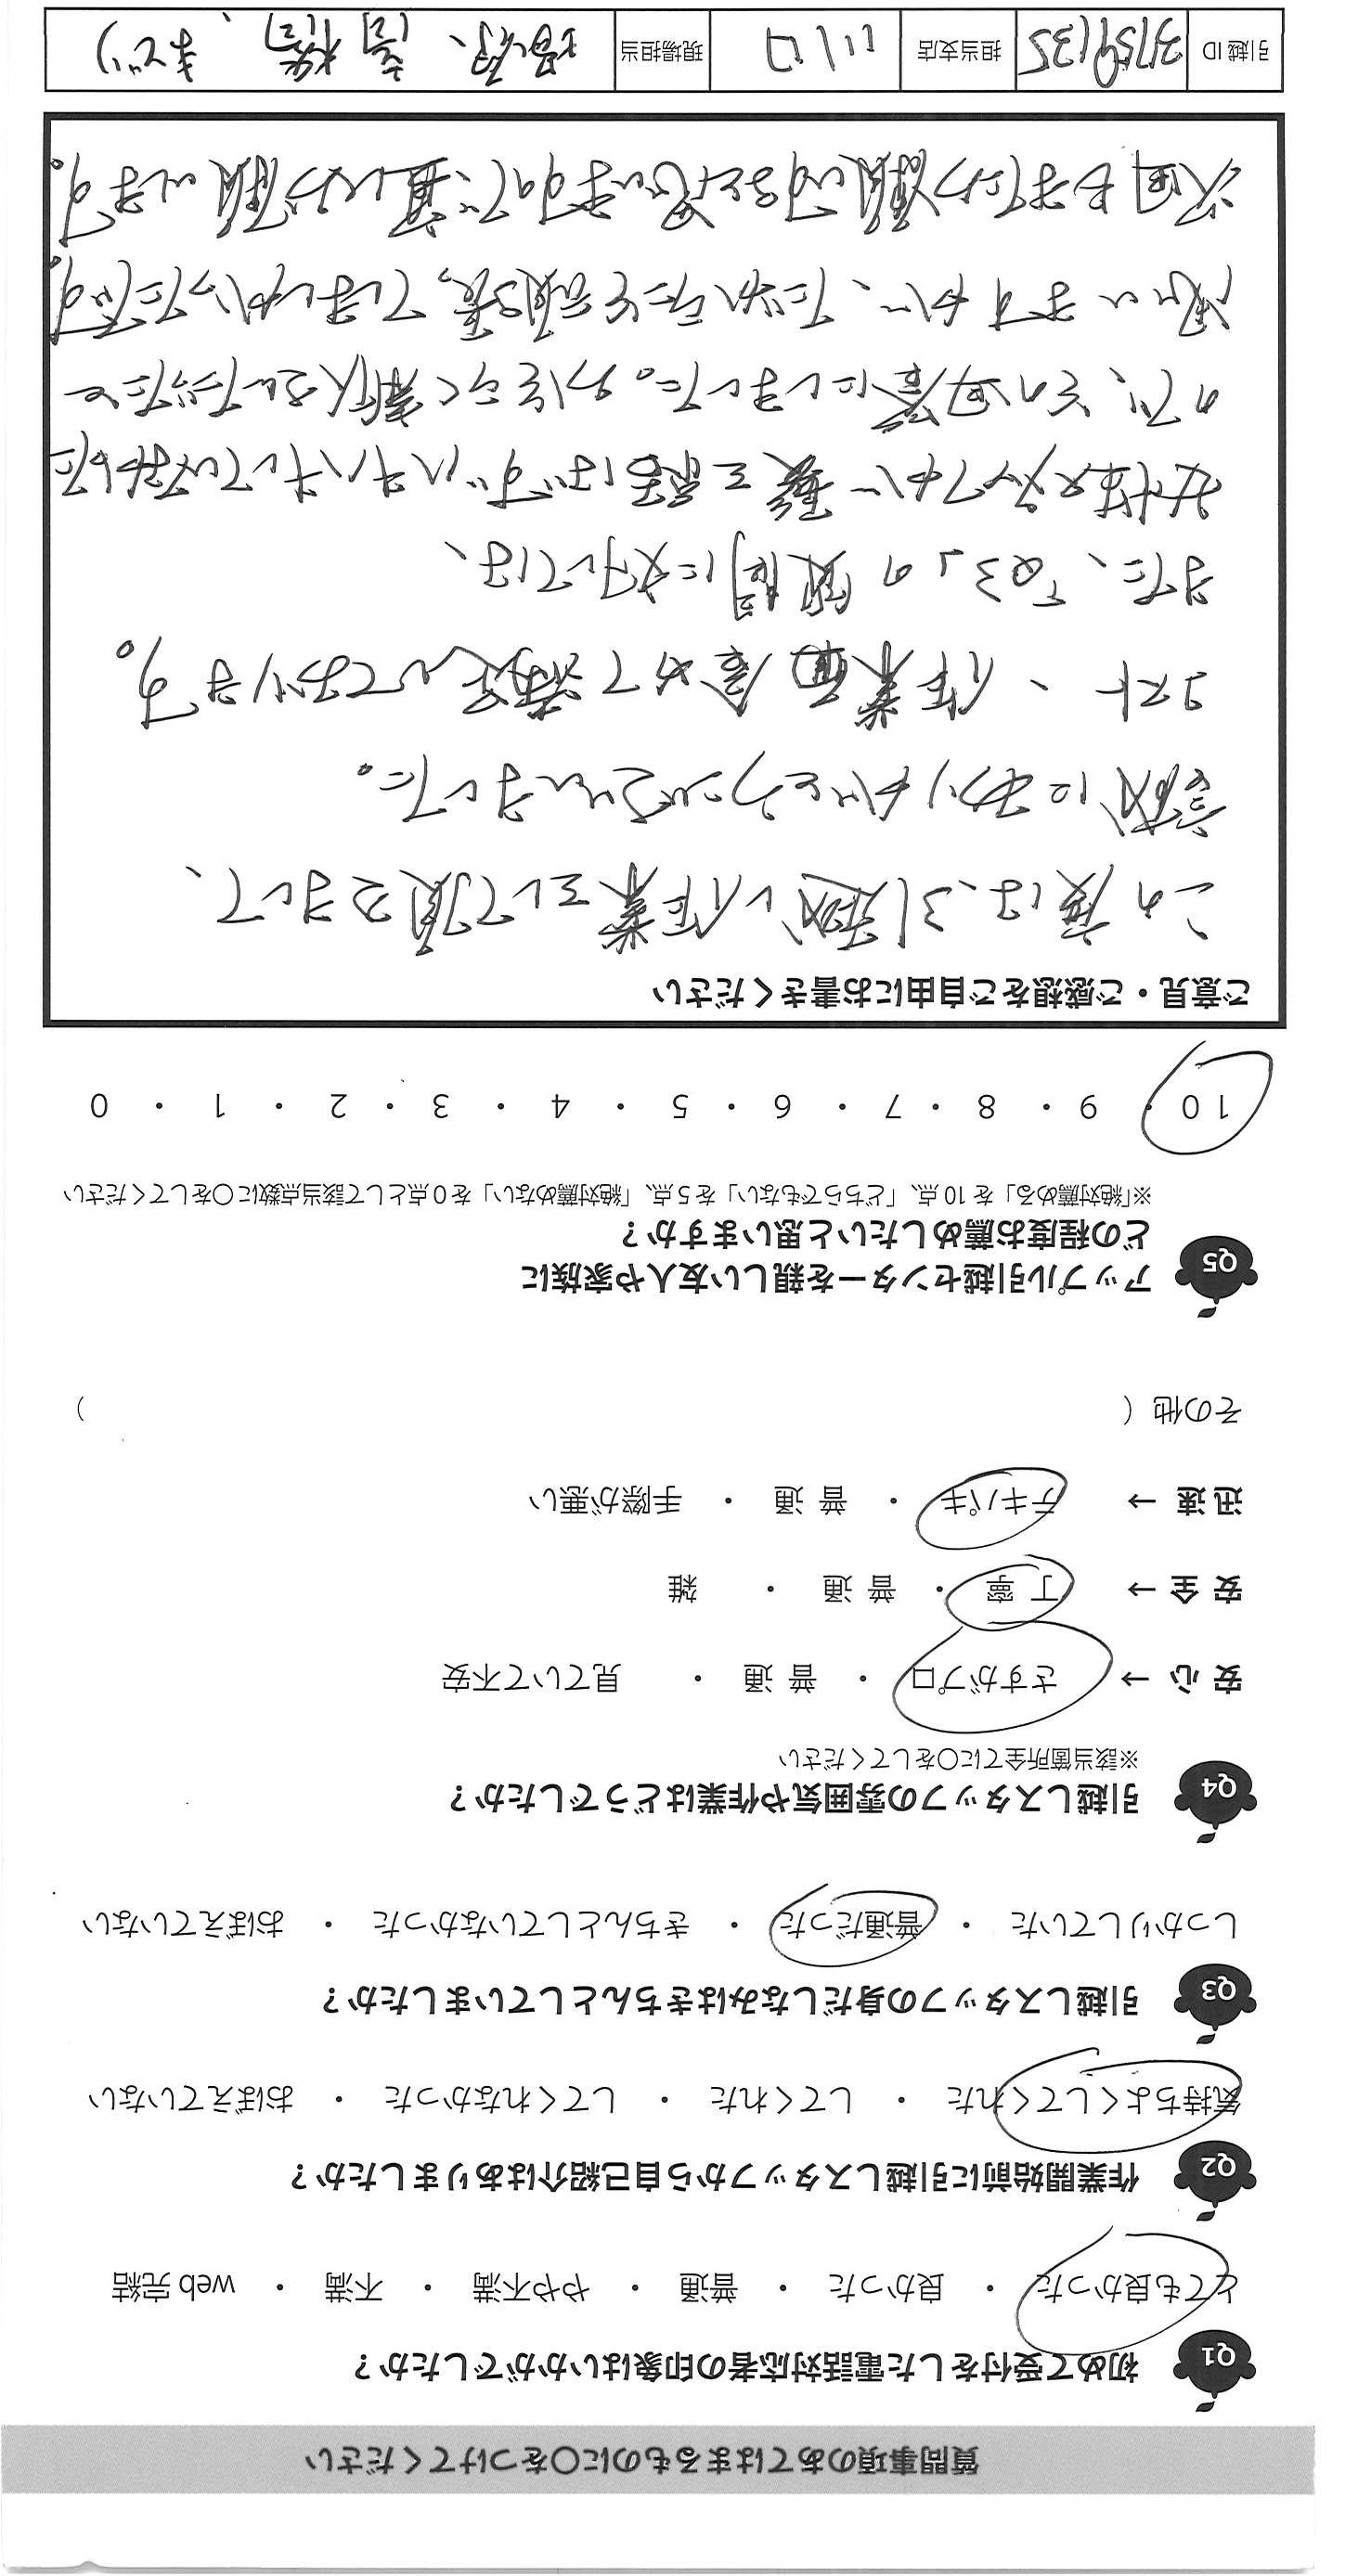 質問事項のあてはまるものに○をつけてください
Q1 初めて受付をした電話対応者の印象はいかがでしたか？
とても良かった ・ 良かった ・ 普通 ・ やや不満 ・ 不満 ・ web 完結
Q2 作業開始前に引越しスタッフから自己紹介はありましたか？
気持ちよくしてくれた ・ してくれた ・ してくれなかった ・ おぼえていない
Q3 引越しスタッフの身だしなみはきちんとしていましたか？
しっかりしていた ・ 普通だった ・ きちんとしていなかった ・ おぼえていない
Q4 引越しスタッフの雰囲気や作業はどうでしたか？
※該当箇所全てに○をしてください
安心 → さすがプロ ・ 普通 ・ 見ていて不安
安全 → 丁寧 ・ 普通 ・ 雑
迅速 → テキパキ ・ 普通 ・ 手際が悪い
その他（ ）
Q5 アップル引越センターを親しい友人や家族に
どの程度お薦めしたいと思いますか？
※「絶対薦める」を 10 点、「どちらでもない」を 5 点、「絶対薦めない」を 0 点として該当点数に○をしてください
10 ・ 9 ・ 8 ・ 7 ・ 6 ・ 5 ・ 4 ・ 3 ・ 2 ・ 1 ・ 0
ご意見・ご感想をご自由にお書きください
この度は、引越し作業をして頂きまして、
誠にありがとうございました。
コスト、作業面含めて満足しております。
また、「Q3」の質問に対しては、
女性スタッフが髪を結ばずハネハネしていました
ので、その回答にしました。おそらく新人さんでしたと
思いますが、だからこそ頑張ってほしかったです。
次回もまたお願いすると思いますので、宜しくお願いします。
引越 ID 3759135 担当支店 川口 現場担当 高橋、まで)